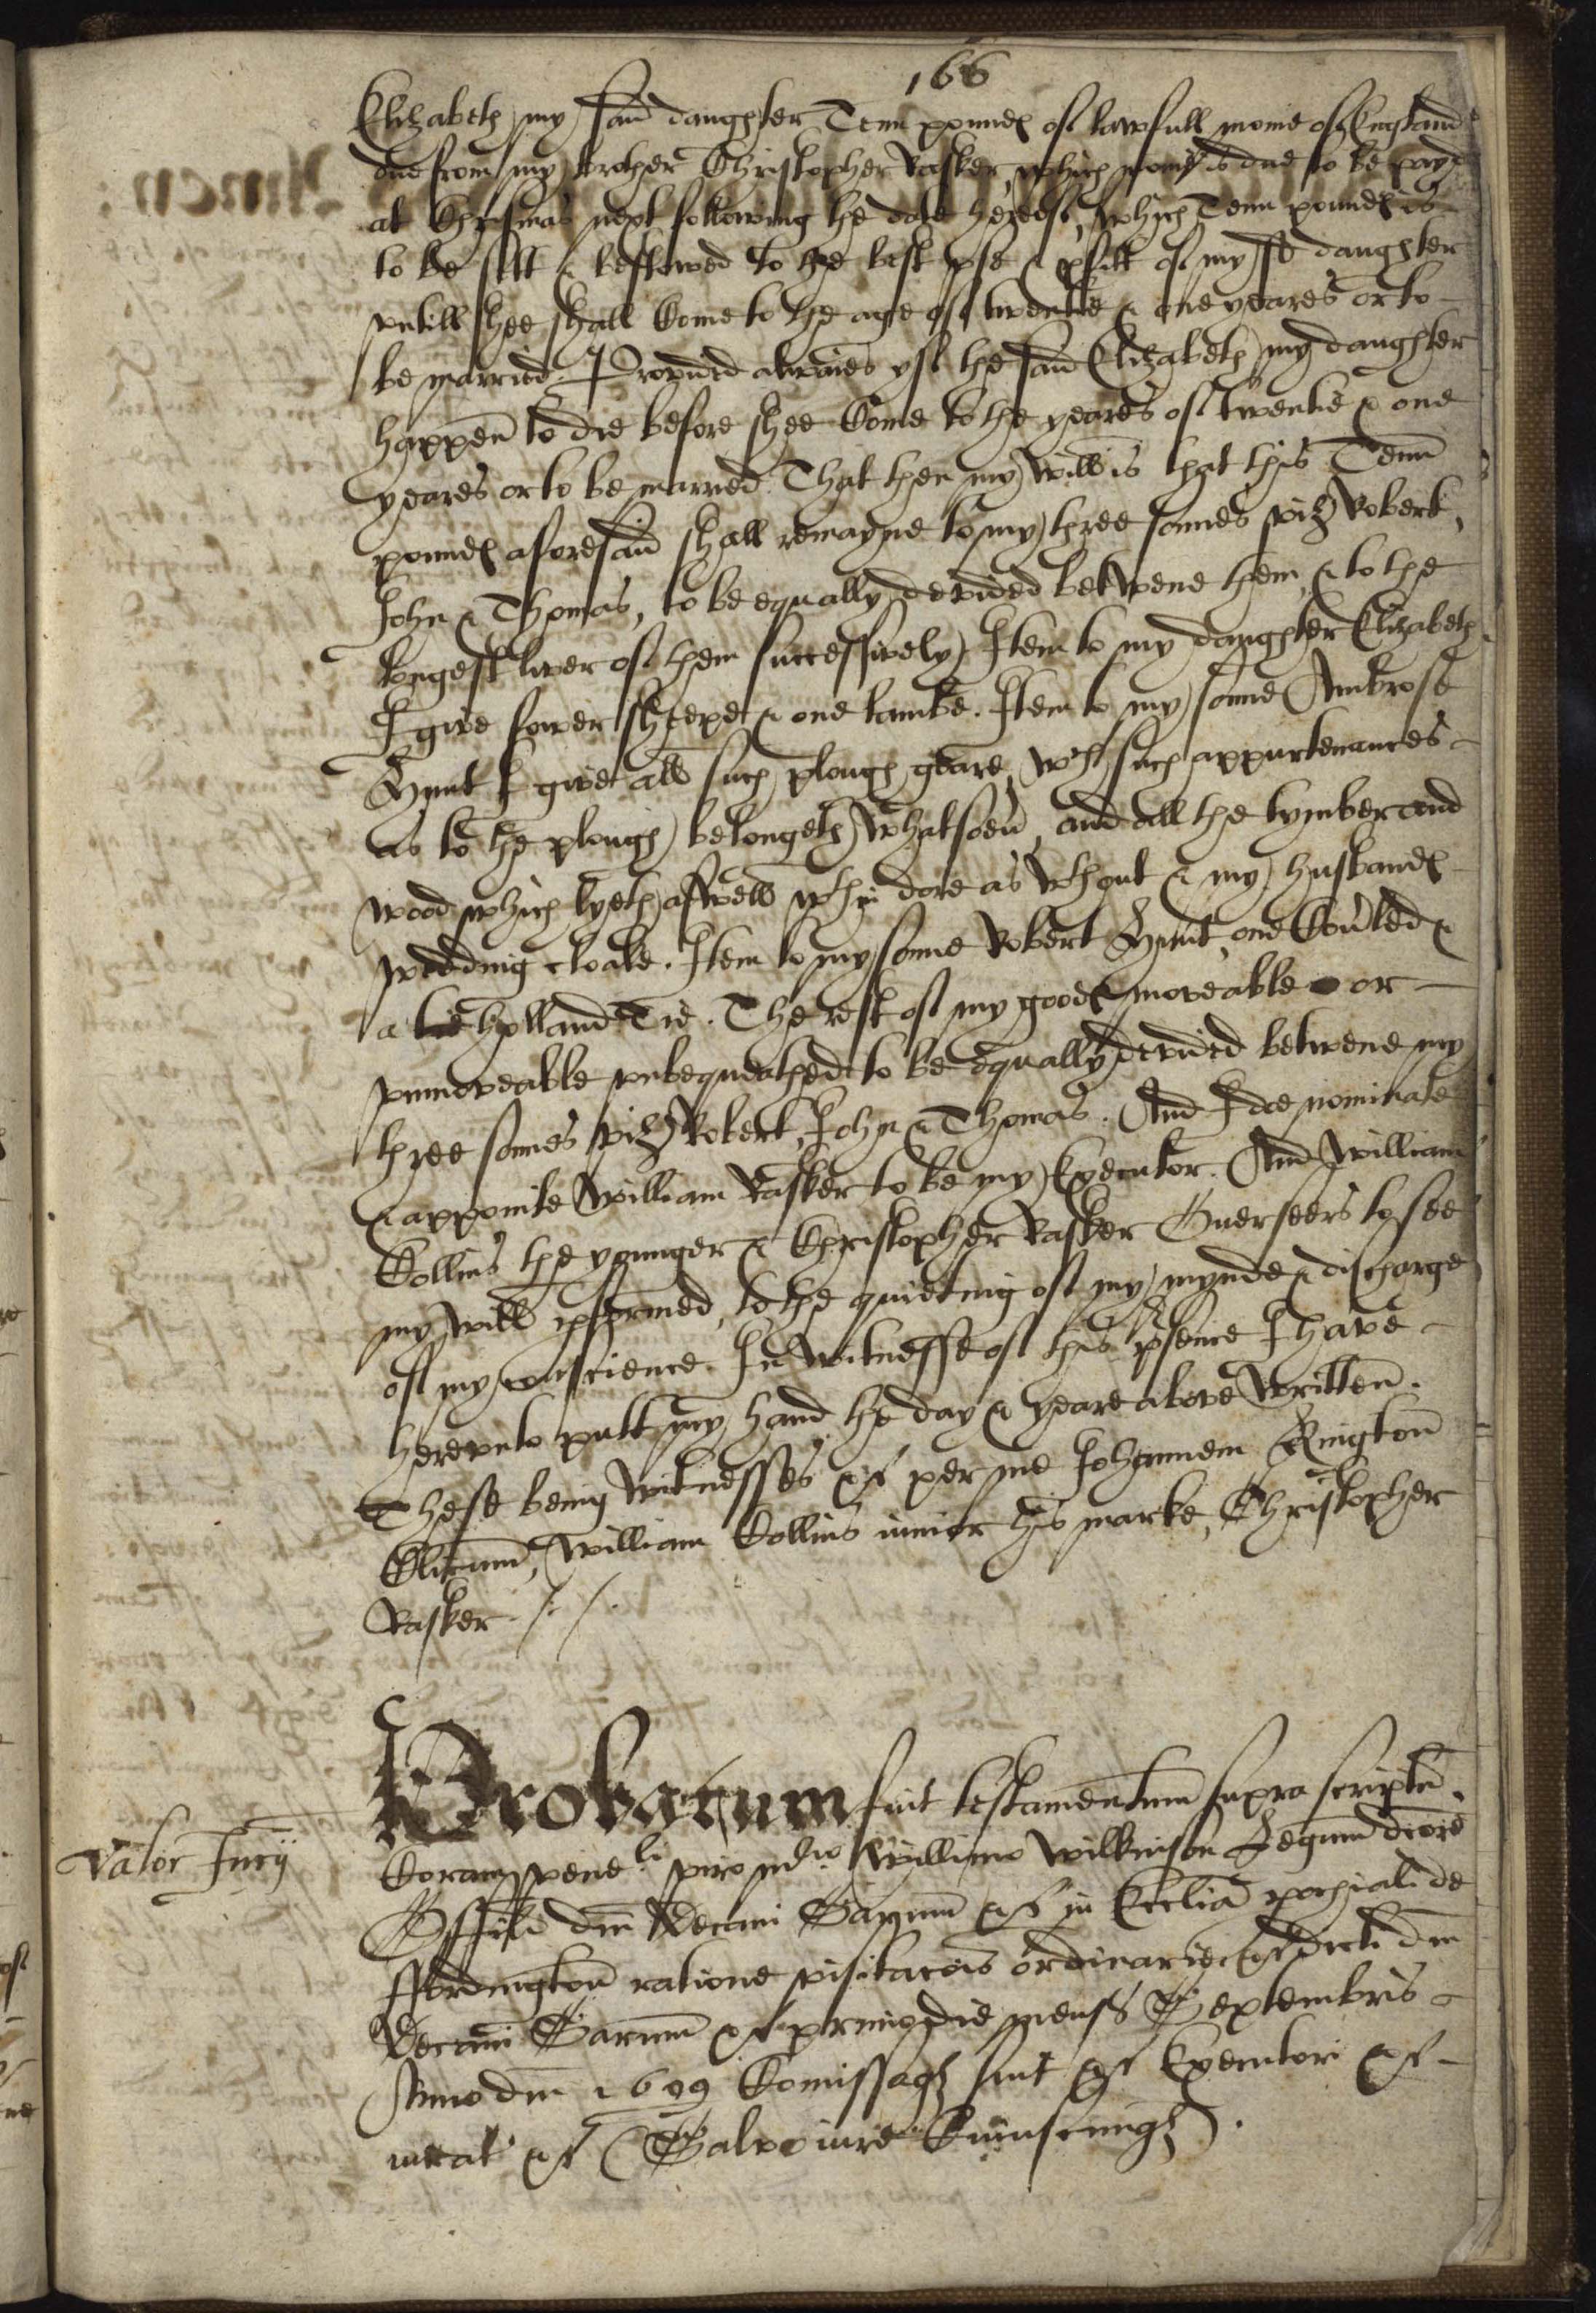 166
Elizabeth my said daughter Tenn poundes of lawfull monie of England
due from my brother Christopher Rasker, which monie is due to be payd
at Christmas next following the date hereof, which Tenn poundes is
to be sett & bestowed to the best use & pfitt of my sd daughter
untill shee shall Come to the age of twentie & one yeares or to
be married. Provided alwaies yf the said Elizabeth my daughter
happen to die before shee Come to the yeares of twentie & one
yeares or to be married That then my will is that this Tenn
poundes aforesaid shall remayne to my three sonnes viz Robert,
John & Thomas, to be equally devided betwene them, & to the
longest liver of them successively Item to my daughter Elizabeth
I give fower sheepe & one lambe. Item to my sonne Ambrose
Hunt I give all such plough geare, wth such appurtenances
as to the plough belongeth whatsoeu, and all the tymber and
wood which lyeth aswell wthin dore as wthout & my husbandes
wedding cloake. Item to my sonne Robert Hunt one &
a holland . The rest of my goodes moveable or
unmoveable unbequeathed to be equally devided betwene my
three sonnes viz Robert, John & Thomas. And I doe nominate
& appointe William Rasker to be my Executor. And William
Collins the younger & Christopher Rasker Overseers to see
my will pformed, to the quieting of my mynde & discharge
of my conscience. In witnesse of this psence I have
hereunto putt my hand the day & yeare above written.
These being witnesses &c per me Johannem Ringtoun
Clicum, William Collins iunior his marke, Christopher
Rasker ./.
Probatum fuit testamentum supra scriptu
Coram veneli viro mro Willimo Wilkinson Legum dcore
Offili dni Decani Sarum &c in Ecclia pochiali de
ffordington ratione visitacois ordinarie &c dicti dni
Decani Sarum &c primo die mensis Septembris
Anno dni 1699 Comissaqz fuit &c Executori &c
iurat &c Salvo iure Cuiuscunqz.
Valor Inrij